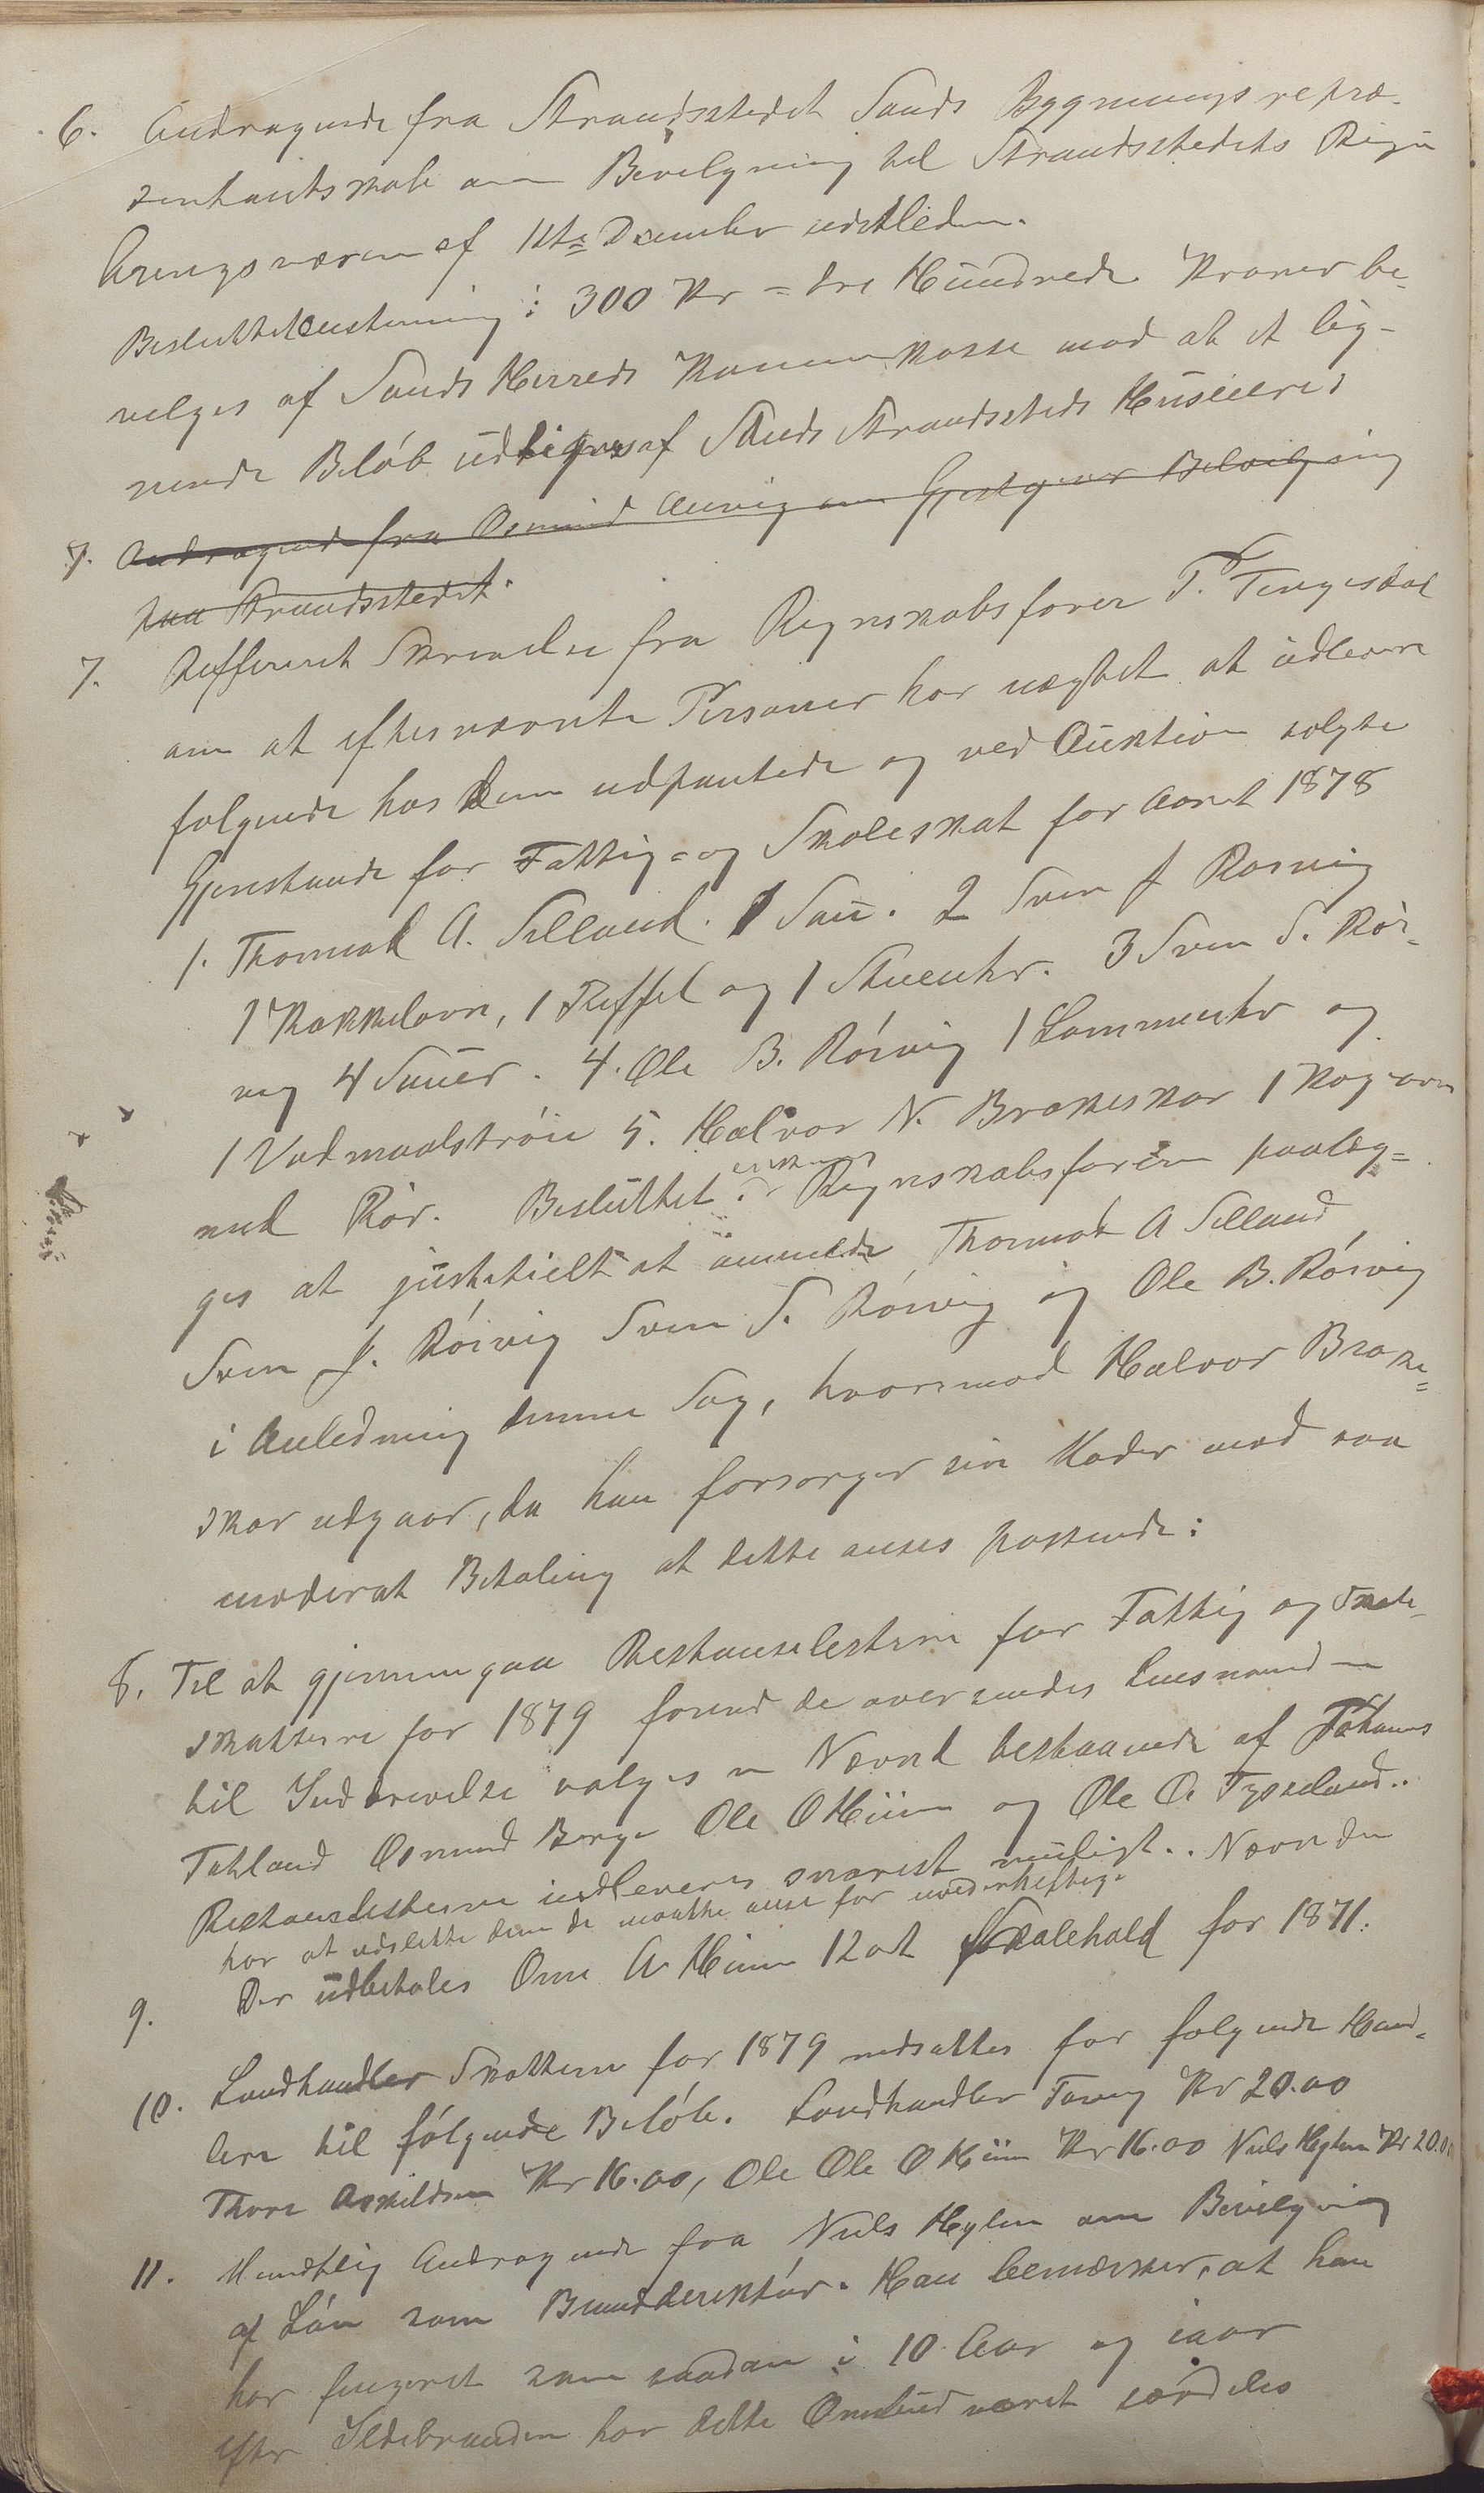 6. Andragende fra Strandstedet Sands Bygningsrepræ-
sentantskab om Bevilgning til Strandstedets Regu
leringsvæsen af 11te December sidstleden.
Besluttet enstemmig: 300 Kr = tre Hundrede Kroner be-
velges af Sands Herreds Kommunekasse mod at et lig-
nende Beløb udlignes af Sands Strandsteds Huseiere
7. Andragende fra Osmund Anvig om Gjestgiver Bevilgning
paa Strandstedet.
7. Refferert Skrivelse fra Regnskabsfører P. Tengesdal
om at efternævnte Personer har nægtet at udlevere
følgende hos dem udpantede og ved Auktion solgte
Gjenstande for Fattig- og Skoleskat for Aaret 1878
1. Thormod A. Selland 1 Sau. 2 Sven J Rørvig
1 Kakkelovn, 1 Riffel og 1 Stueuhr. 3 Sven S. Rør-
vig 4 Sauer. 4. Ole B. Rørvig 1 Lommeuhr og
1 Vadmaalstrøie 5. Halvor N. Brakeskar 1 Kogeovn
med Rør. Besluttet: Regnskabsføreren paalæg-
ges at justitielt at anmelde Thormod A Selland
Sven J. Rørvig Sven S. Rørvig og Ole B. Rørvig
i Anledning denne Sag, hvorimod Halvor Brake-
skar udgaar, da han forsørger sin Moder mod saa
moderat Betaling at dette anses passende:
8. Til at gjennemgaa Restanselisterne for Fattig og Skole-
skatterne for 1879 forend de oversendes Lensmanden
til Inddrivelse valges en Nævnd bestaaende af Johannes
Tøtland Osmund Berge Ole O Hiim og Ole O. Tysseland..
Restanselisterne indleveres snarest muligt.. Nævnden
har at udslette dem de maatte anse for uvederheftige
9. Der udbetales Orm A Hiim 12 ort for Skolehold for 1871.
10. Landhandler Skatterne for 1879 nedsættes for følgende Hand-
lere til følgende Beløb. Landhandler Tveig Kr 20.00
Thore Askildsen Kr 16.00, Ole Ole O Hiim Kr 16.00 Niels Hylen Kr 20.00
11. Mundtlig Andragende fra Niels Hylen om Bevilgning
af Løn som Branddirektør. Han bemærker, at han
har fungeret som saadan i 10 Aar og iaar
efter Ildebranden har dette Ombud været særdeles